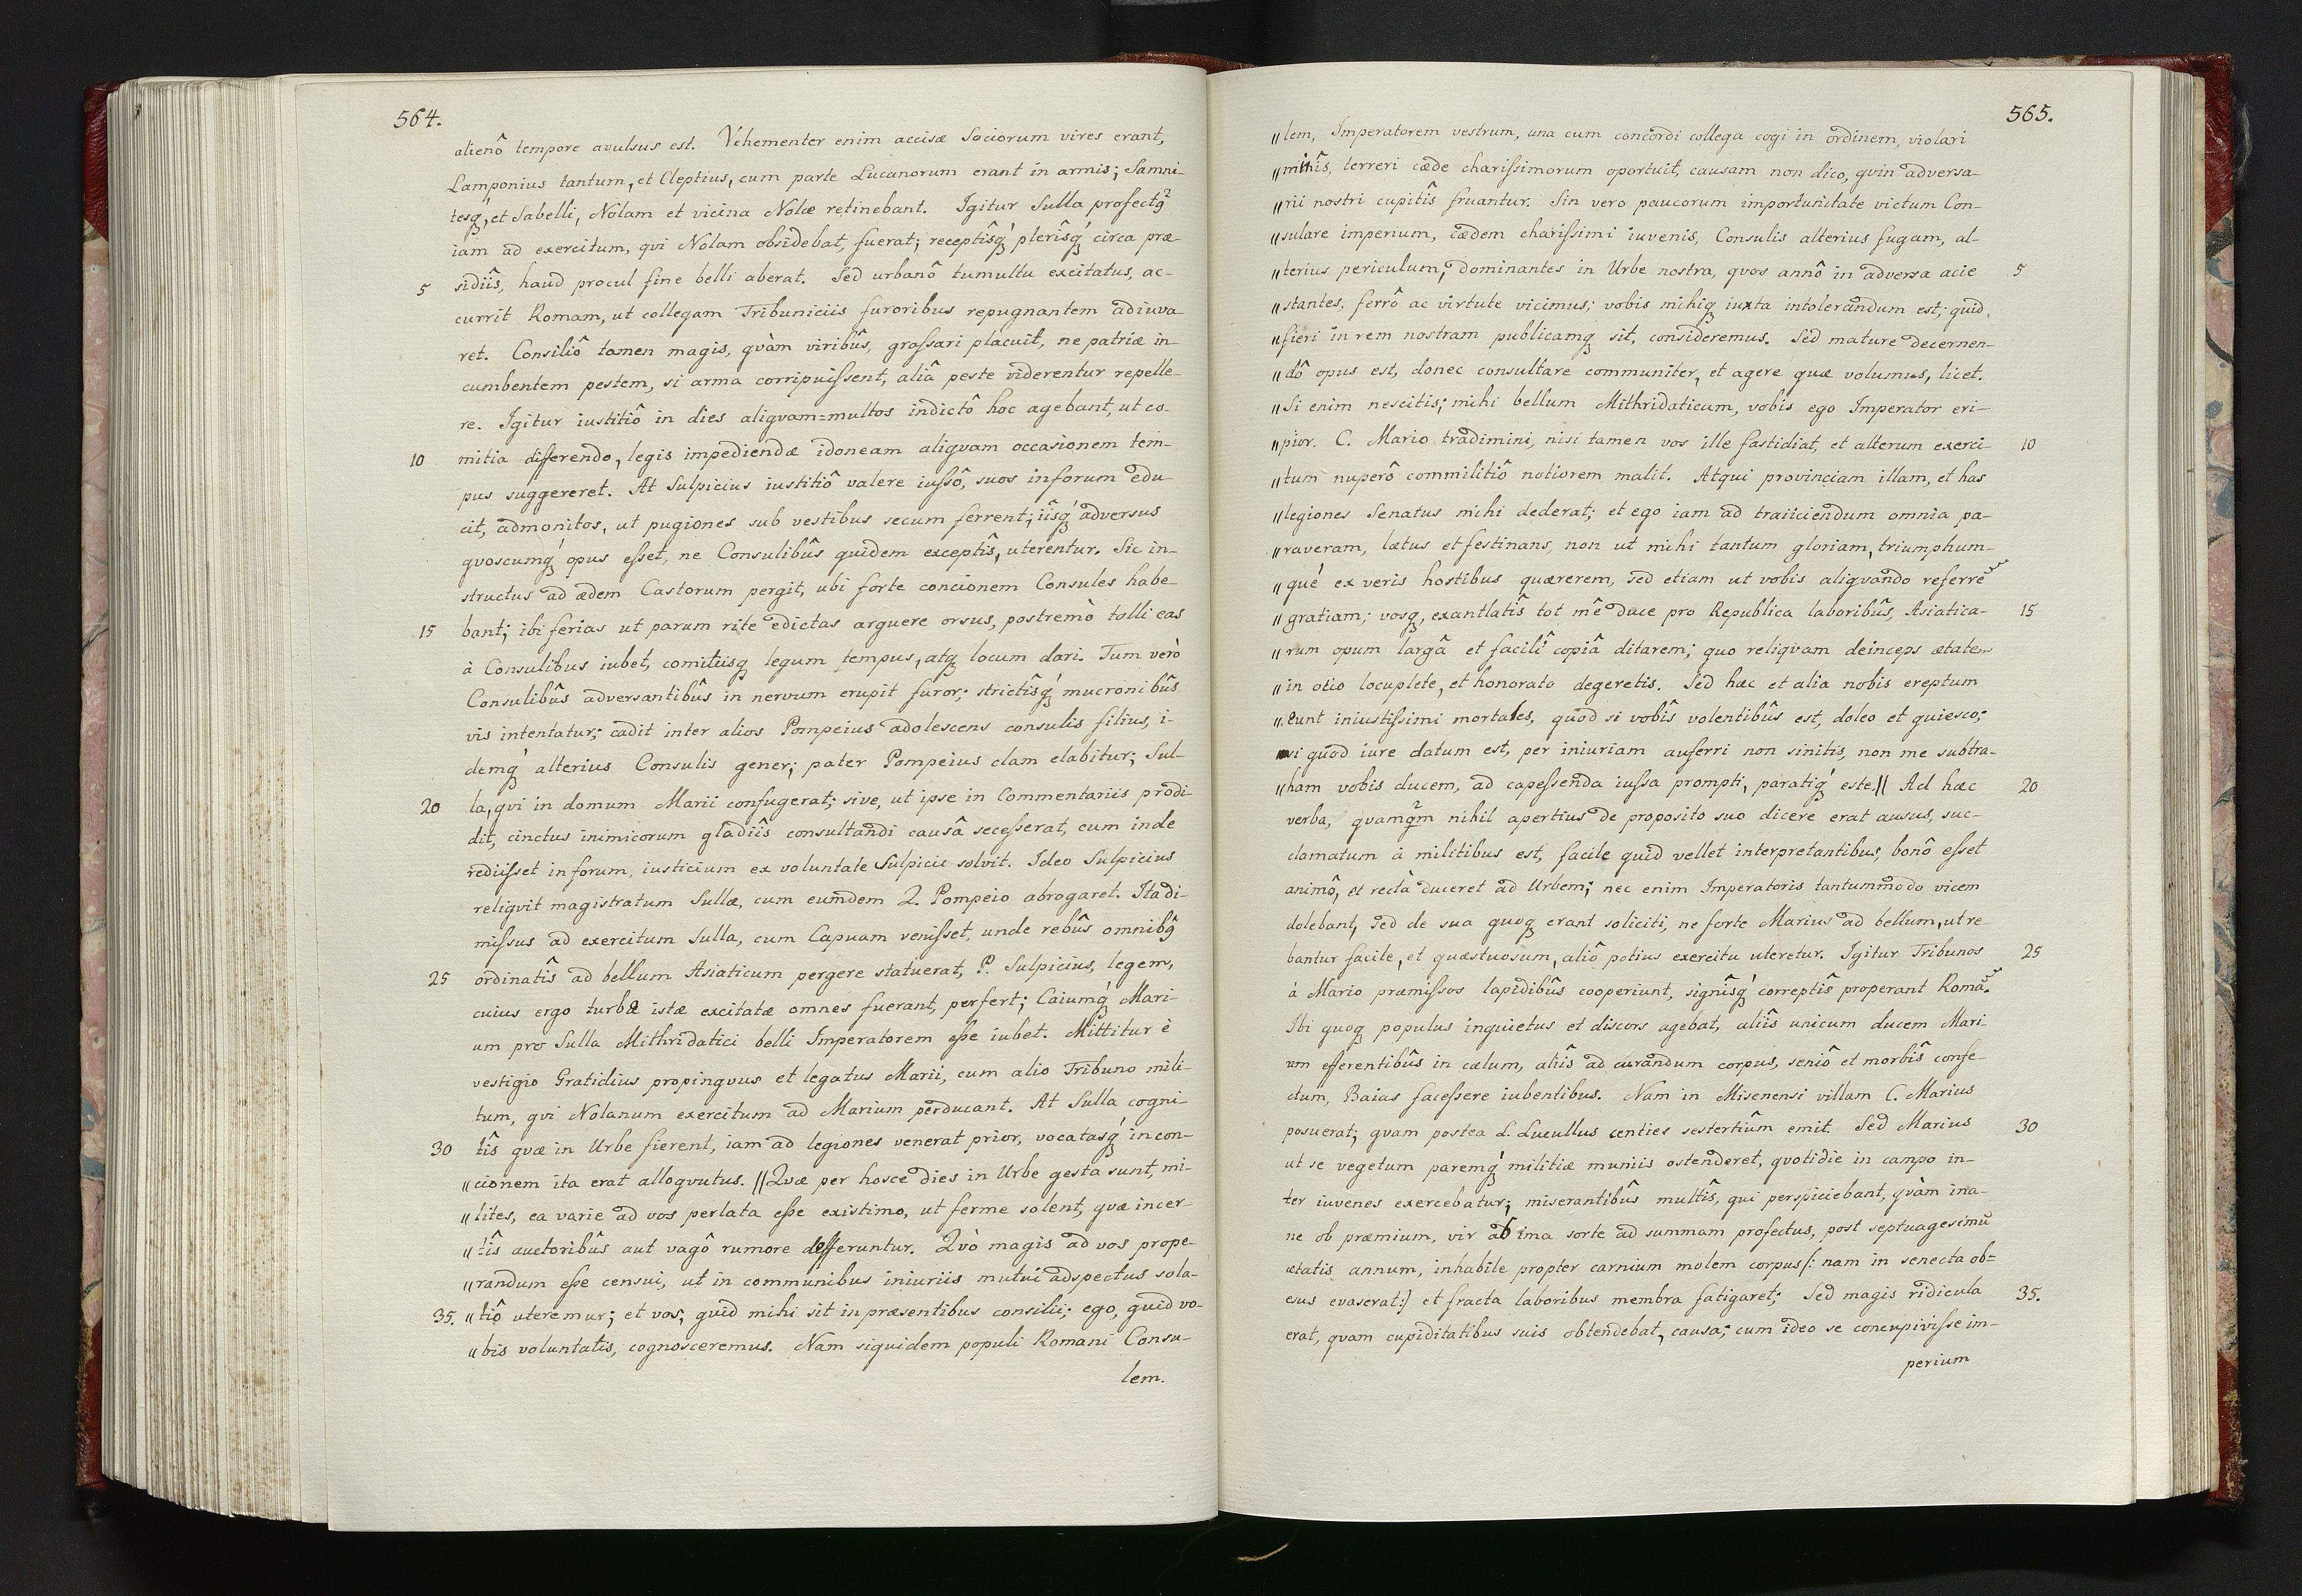 564.
alienô tempore avulsus est. Vehementer enim accisæ Sociorum vires erant,
Lamponius tantum, et Cleptius, cum parte Lucanorum erant in armis; Samni-
tesq́, et Sabelli, Nolam et vicina Nolæ retinebant. Igitur Sulla profectꝰ
iam ad exercitum, qvi Nolam obsidebat, fuerat; receptîsq́ plerîsq́ circa præ-
5 sidiîs, haud procul fine belli aberat. Sed urbanô tumultu excitatus, ac-
currit Romam, ut collegam Tribuniciis furoribus repugnantem adiuva-
ret. Consiliô tamen magis, qvàm viribûs, graſsari placuit, ne patriæ in-
cumbentem pestem, si arma corripuiſsent, aliâ peste viderentur repelle-
re. Igitur iustitiô in dies aliqvam=multos indictô hoc agebant, ut co-
10 mitia differendo, legis impediendæ idoneam aliqvam occasionem tem-
pus suggereret. At Sulpicius iustitiô valere iuſsô, suos inforum edu-
cit, admonitos, ut pugiones sub vestibus secum ferrent; iîsq́ adversus
qvoscumq́ opus eſset, ne Consulibûs quidem exceptîs, uterentur. Sic in-
structus ad ædem Castorum pergit, ubi forte concionem Consules habe-
15 bant; ibi ferias ut parum rite edictas arguere orsus, postremò tolli eas
à Consulibus iubet, comitiisq legum tempus, atq locum dari. Tum verò
Consulibûs adversantibûs in nervum erupit furor; strictîsq́ mucronibûs
vis intentatur; cadit inter alios Pompeius adolescens consulis filius, i-
demq́ alterius Consulis gener; pater Pompeius clam elabitur; Sul-
20 la, qvi in domum Marii confugerat; sive, ut ipse in Commentariis prodi-
dit, cinctus inimicorum gladiîs consultandi causâ seceſserat, cum inde
rediiſset in forum, iusticium ex voluntate Sulpicii solvit. Ideo Sulpicius
reliqvit magistratum Sullæ, cum eumdem Q. Pompeio abrogaret. Ita di-
miſsus ad exercitum Sulla, cum Capuam veniſset, unde rebûs omnibꝰ
25 ordinatîs ad bellum Asiaticum pergere statuerat, P. Sulpicius, legem,
cuius ergo turbæ istæ excitatæ omnes fuerant, perfert; Caiumq́ Mari-
um pro Sulla Mithridatici belli Imperatorem eſse iubet. Mittitur è
vestigio Gratidius propinqvus et legatus Marii, cum alio Tribuno mili-
tum, qvi Nolanum exercitum ad Marium perducant. At Sulla cogni-
30 tîs qvæ in Urbe fierent, iam ad legiones venerat prior, vocatasq́ in con-
〃cionem ita erat alloqvutus. // Qvæ per hosce dies in Urbe gesta sunt, mi-
〃lites, ea varie ad vos perlata eſse existimo, ut ferme solent, qvæ incer-
〃tîs auctoribûs aut vagô rumore defferuntur. Qvò magis ad vos prope-
〃randum eſse censui, ut in communibus iniuriis mutui adspectus sola-
35. 〃tiô uteremur; et vos, quid mihi sit in præsentibus consilii; ego, quid vo-
〃bis voluntatis, cognosceremus. Nam siquidem populi Romani Consu-
lem.
565.
〃lem, Imperatorem vestrum, una cum concordi collega cogi in ordinem, violari
〃minîs, terreri cæde chariſsimorum oportuit, causam non dico, qvin adversa-
〃rii nostri cupitîs fruantur. Sin vero paucorum importunitate victum Con-
〃sulare imperium, cædem chariſsimi iuvenis, Consulis alterius fugam, al-
〃terius periculum, dominantes in Urbe nostra, qvos annô in adversa acie 5
〃stantes, ferrô ac virtute vicimus; vobis mihiq iuxta intolerandum est; quid
〃fieri in rem nostram publicamq sit, consideremus. Sed mature decernen-
〃dô opus est, donec consultare communiter, et agere quæ volumus, licet.
〃Si enim nescitis; mihi bellum Mithridaticum, vobis ego Imperator eri-
〃pior. C. Mario tradimini, nisi tamen vos ille fastidiat, et alterum exerci- 10
〃tum nuperô commilitiô notiorem malit. Atqui provinciam illam, et has
〃legiones Senatus mihi dederat; et ego iam ad traiiciendum omnia pa-
〃raveram, lætus et festinans, non ut mihi tantum gloriam, triumphum-
〃qué ex veris hostibus quærerem, sed etiam ut vobis aliqvando referre
〃gratiam; vosq, exantlatîs tot mê duce pro Republica laboribûs, Asiatica- 15
〃rum opum largâ et facilî copiâ ditarem; quo reliqvam deinceps ætatem
〃in otio locuplete, et honorato degeretis. Sed hæc et alia nobis ereptum
〃eunt iniustiſsimi mortales, quod si vobîs volentibûs est, doleo et quiesco;
si quod iure datum est, per iniuriam auferri non sinitis, non me subtra-
〃ham vobis ducem, ad capeſsenda iuſsa prompti, paratiq́ este. // Ad hæc 20
verba, qvamqm nihil apertius de proposito suo dicere erat ausus, suc-
clamatum à militibus est, facile quid vellet interpretantibus, bonô eſset
animô, et rectà duceret ad Urbem; nec enim Imperatoris tantummodo vicem
dolebant, sed de sua quoq erant soliciti, ne forte Marius ad bellum, ut re-
bantur facile, et quæstuosum, aliô potius exercitu uteretur. Igitur Tribunos 25
à Mario præmiſsos lapidibûs cooperiunt, signîsq́ correptîs properant Romã.
Ibi quoq populus inquietus et discors agebat, aliîs unicum ducem Mari-
um efferentibûs in cælum, aliîs ad curandum corpus, seniô et morbîs confe-
ctum, Baias faceſsere iubentibus. Nam in Misenensi villam C. Marius
posuerat; qvam postea L. Lucullus centies sestertiûm emit. Sed Marius 30
ut se vegetum paremq́ militiæ muniis ostenderet, qvotidie in campo in-
ter iuvenes exercebatur; miserantibûs multîs, qui perspiciebant, qvàm ina-
ne ob præmium, vir ab ima sorte ad summam profectus, post septuagesimũ
ætatis annum, inhabile propter carnium molem corpus /: nam in senecta ob=
esus evaserat:/ et fracta laboribus membra fatigaret; Sed magis ridicula 35.
erat, qvam cupiditatibus suis obtendebat, causa; cum ideo se concupiviſse im-
perium